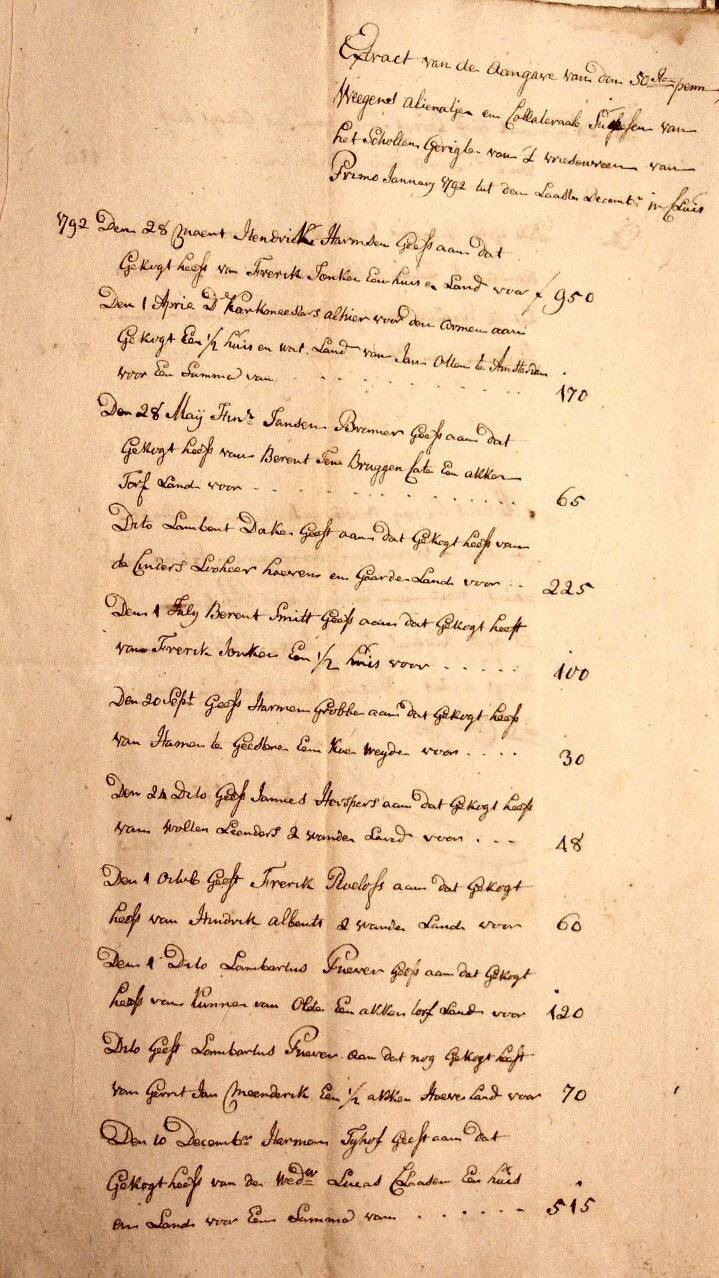 Extract van de Aangave van den 50 sten penn
Weegens alienatien en Collateraale van
het Scholten Gerigte van 't vriesenveen van
Primo January 1792 tot den Laasten Decembr incluis
1792 Den 28 Maert Hendrik Harmsen Geeft aan dat
Gekogt heeft van Frerik Jonker Een huis en Land voor f 950
Den 1 April D' Karkmeesters alhier voor den armen aan
Gekogt Een 1/2 huis en wat Land van Jan Otten te Amsterdam
voor Een Summa van . . . . . . . . 170
Den 28 Maÿ Hinr Jansen Bramer Geeft aan dat
Gekogt heeft van Berent Ten Bruggen Cate Een akker
Torf Land voor . . . . . . . . 65
Dito Lambert Daker Geeft aan dat Gekogt heeft van
de hoeven en Gaarden Land voor . . 225
Den 1 July Berent Smitt Geeft aan dat Gekogt heeft
van Frerik Jonker Een 1/2 huis voor . . . . . 100
Den 20 Sept Geeft Harmen Grobben aan dat Gekogt heeft
van Harmen te Geesbree Een Koe weyden voor . . . . 30
Den 24 Dito Geeft Jannes Hospers aan dat Gekogt heeft
van Wolter Leenders 2 wanden Land voor . . . 48
Den 1 Octob Geeft Frerik Roelofs aan dat Gekogt
heeft van Hindrik alberts 2 wanden Land voor 60
Den 1 Dito Lambartus Frever Geeft aan dat Gekogt
heeft van Kunner van Olden Een akker torf Land voor 120
Dito Geeft Lambartus Frever aan dat nog Gekogt heeft
van Gerrit Jan Meenderik Een 1/2 akker Hoever Land voor 70
Den 10 Decembr Harmen Tyhof Geeft aan dat
Gekogt heeft van de Wedw Lucas Claasen Een huis
en Land voor Een Summa van . . . . . . 515